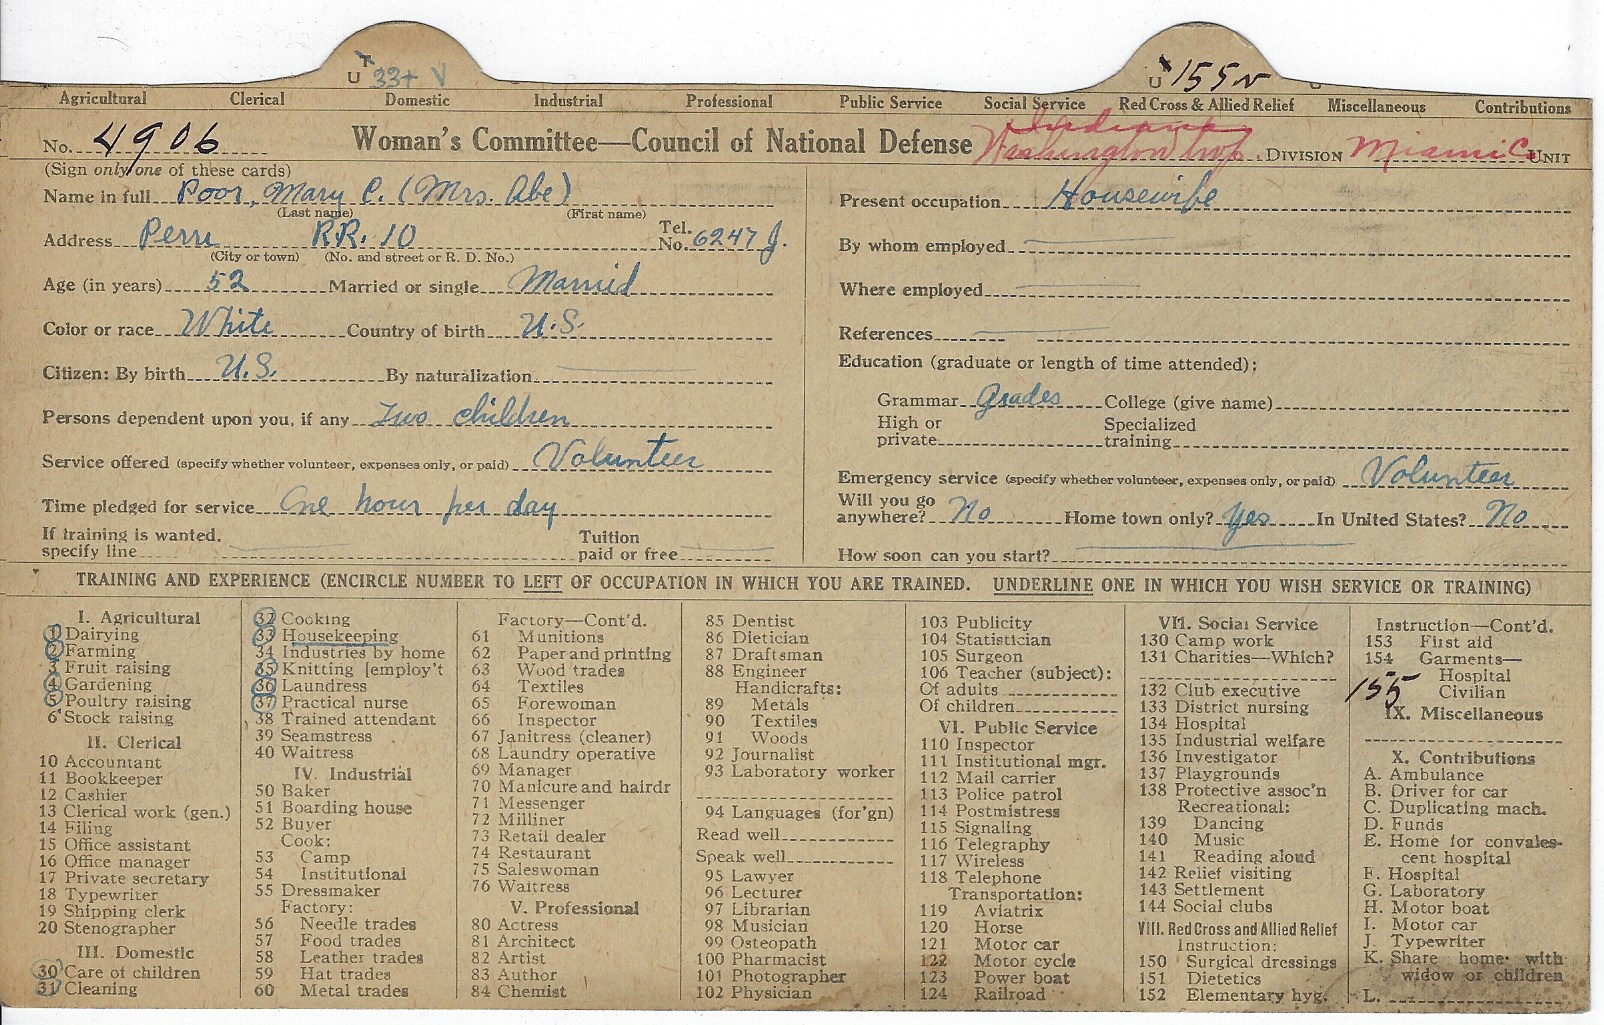 U 33+ V
U 155 v
Agricultural Clerical Domestic Industrial Professional Public Service Social Service Red Cross & Allied Relief Miscellaneous Contributions
No. 4906 Woman's Committee—Council of National Defense Indiana Washington twp. DIVISION Miami C. UNIT
(Sign only one of these cards)
Name in full Poor, Mary C. (Mrs. Abe)
(Last name) (First name)
Address Peru RR. 10 Tel. No. 6247 J.
(City or town) (No. and street or R. D. No.)
Age (in years) 52 Married or single Married
Color or race White Country of birth U.S.
Citizen: By birth U.S. By naturalization
Persons dependent upon you, if any Two children
Service offered (specify whether volunteer, expenses only, or paid) Volunteer
Time pledged for service One hour per day
If training is wanted, specify line Tuition paid or free
Present occupation Housewife
By whom employed
Where employed
References
Education (graduate or length of time attended):
Grammar Grades College (give name)
High or private Specialized training
Emergency service (specify whether volunteer, expenses only, or paid) Volunteer
Will you go anywhere? No Home town only? Yes In United States? No
How soon can you start?
TRAINING AND EXPERIENCE (ENCIRCLE NUMBER TO LEFT OF OCCUPATION IN WHICH YOU ARE TRAINED. UNDERLINE ONE IN WHICH YOU WISH SERVICE OR TRAINING)
I. Agricultural
1 Dairying
2 Farming
3 Fruit raising
4 Gardening
5 Poultry raising
6 Stock raising
II. Clerical
10 Accountant
11 Bookkeeper
12 Cashier
13 Clerical work (gen.)
14 Filing
15 Office assistant
16 Office manager
17 Private secretary
18 Typewriter
19 Shipping clerk
20 Stenographer
III. Domestic
30 Care of children
31 Cleaning
32 Cooking
33 Housekeeping
34 Industries by home
35 Knitting [employ't
36 Laundress
37 Practical nurse
38 Trained attendant
39 Seamstress
40 Waitress
IV. Industrial
50 Baker
51 Boarding house
52 Buyer
Cook:
53 Camp
54 Institutional
55 Dressmaker
Factory:
56 Needle trades
57 Food trades
58 Leather trades
59 Hat trades
60 Metal trades
Factory—Cont'd.
61 Munitions
62 Paper and printing
63 Wood trades
64 Textiles
65 Forewoman
66 Inspector
67 Janitress (cleaner)
68 Laundry operative
69 Manager
70 Manicure and hairdr
71 Messenger
72 Milliner
73 Retail dealer
74 Restaurant
75 Saleswoman
76 Waitress
V. Professional
80 Actress
81 Architect
82 Artist
83 Author
84 Chemist
85 Dentist
86 Dietician
87 Draftsman
88 Engineer
Handicrafts:
89 Metals
90 Textiles
91 Woods
92 Journalist
93 Laboratory worker
94 Languages (for'gn)
Read well
Speak well
95 Lawyer
96 Lecturer
97 Librarian
98 Musician
99 Osteopath
100 Pharmacist
101 Photographer
102 Physician
103 Publicity
104 Statistician
105 Surgeon
106 Teacher (subject):
Of adults
Of children
VI. Public Service
110 Inspector
111 Institutional mgr.
112 Mail carrier
113 Police patrol
114 Postmistress
115 Signaling
116 Telegraphy
117 Wireless
118 Telephone
Transportation:
119 Aviatrix
120 Horse
121 Motor car
122 Motor cycle
123 Power boat
124 Railroad
VII. Social Service
130 Camp work
131 Charities—Which?
132 Club executive
133 District nursing
134 Hospital
135 Industrial welfare
136 Investigator
137 Playgrounds
138 Protective assoc'n
Recreational:
139 Dancing
140 Music
141 Reading aloud
142 Relief visiting
143 Settlement
144 Social clubs
VIII. Red Cross and Allied Relief
Instruction:
150 Surgical dressings
151 Dietetics
152 Elementary hyg.
Instruction—Cont'd.
153 First aid
154 Garments—
Hospital
155 Civilian
IX. Miscellaneous
X. Contributions
A. Ambulance
B. Driver for car
C. Duplicating mach.
D. Funds
E. Home for convales-
cent hospital
F. Hospital
G. Laboratory
H. Motor boat
I. Motor car
J. Typewriter
K. Share home with
widow or children
L.